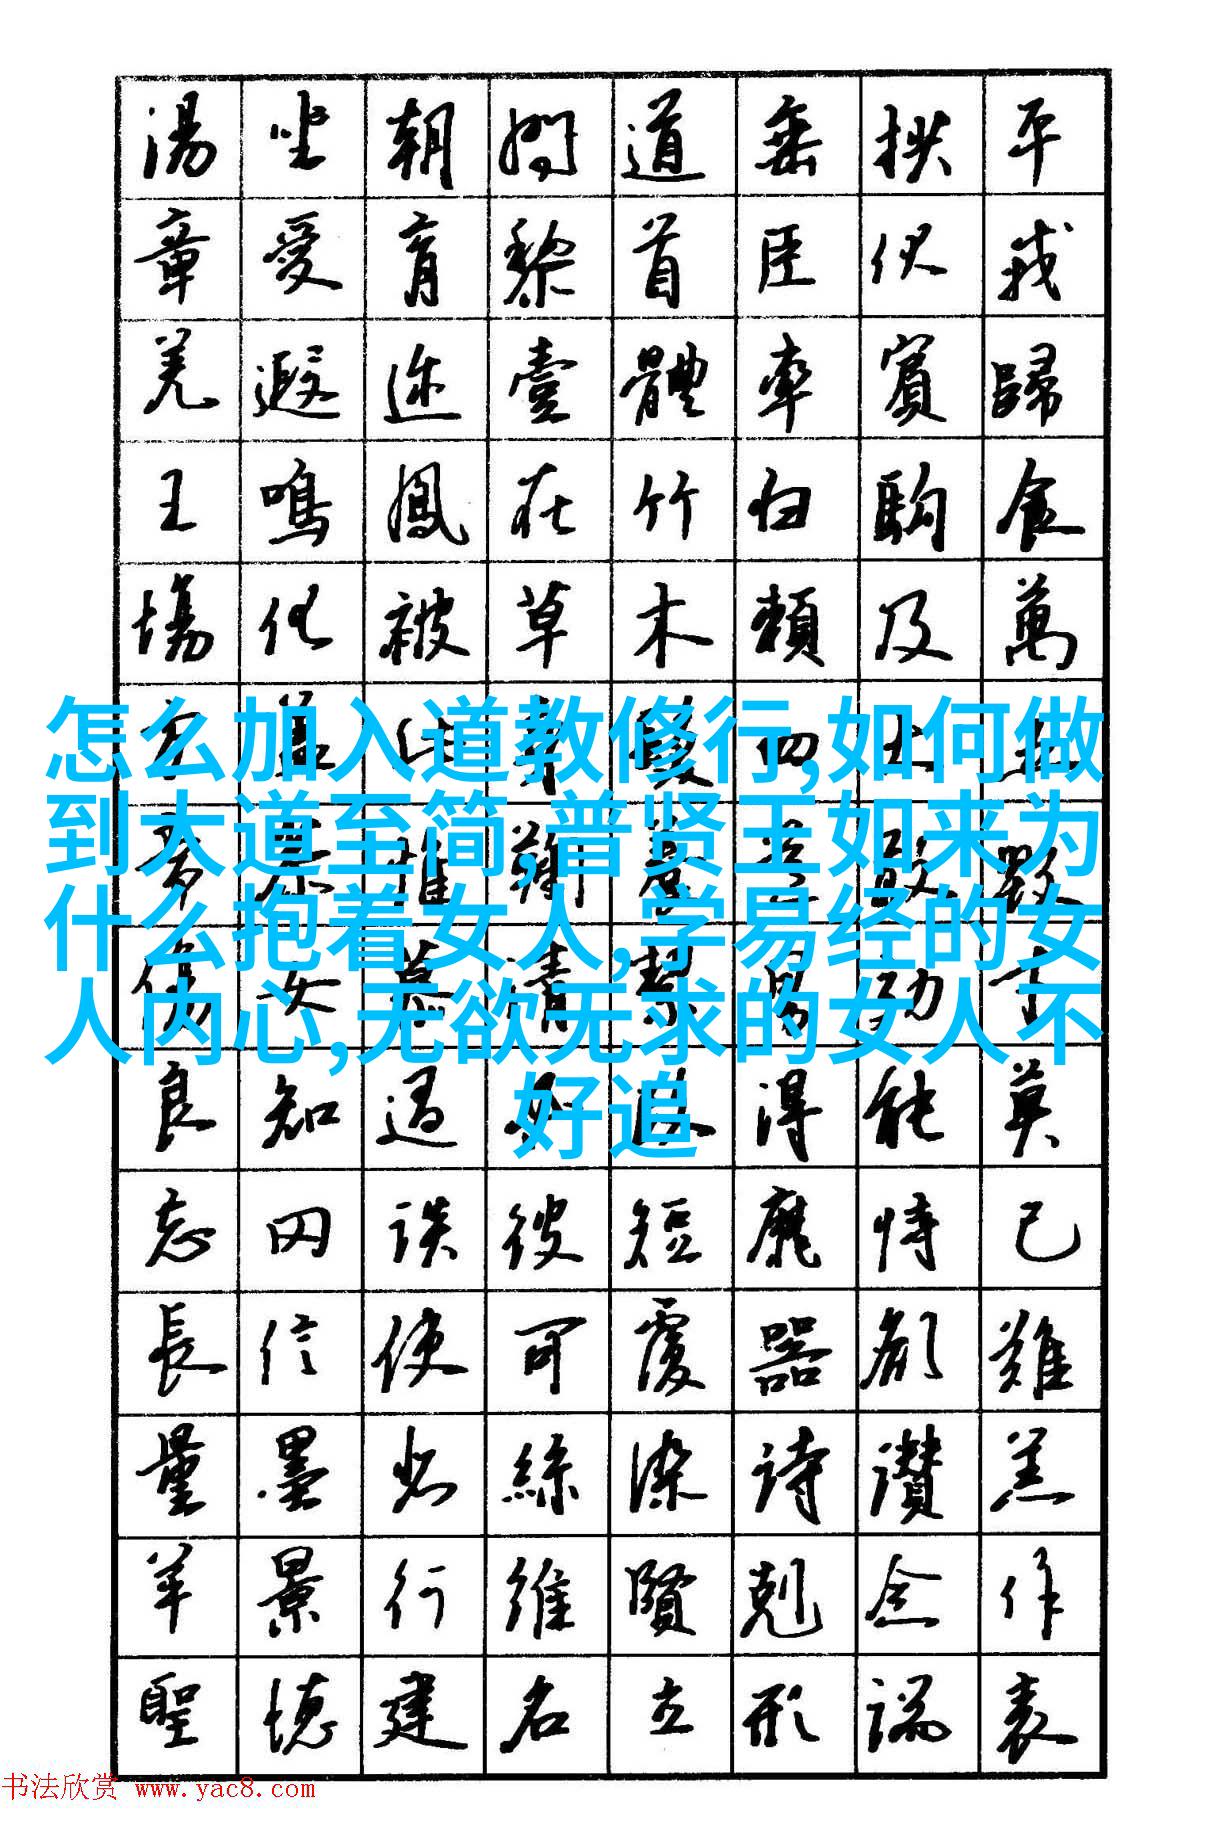 湯坐朝問道垂拱平
章愛育黎首臣伏戎
羌遐迩壹體率賓歸
王鳴鳳在竹白駒食
場化被草木賴及萬
怎么加入道教修行,如何做
到大道至简,普贤王如来为
什么抱着女人,学易经的女
人内心,无欲无求的女人不
好追
傷女慕清絜男効才
良知過必改得能莫
忘罔談彼短靡恃己
長信使可覆器欲難
量墨悲絲染詩讚羔
羊景行維賢剋念作
聖德建名立形端表
书法欣赏 www.yac8.com